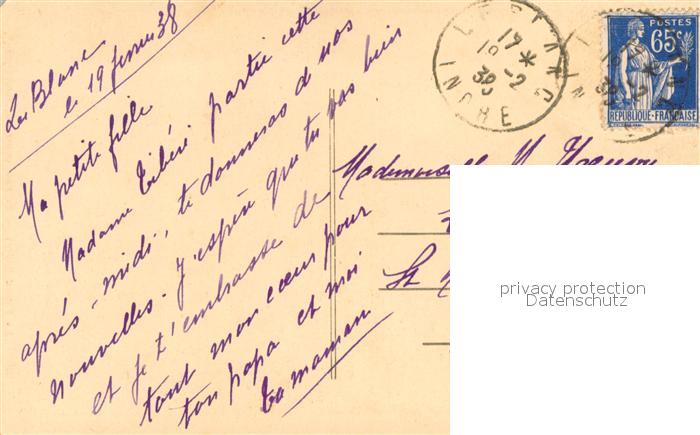 Le Blanc
le 19 février 38
Ma petite fille
Madame Tibéri partie cette
après-midi, te donneras de nos
nouvelles. J'espère que tu vas bien
et je t'embrasse de
tout mon cœur pour
ton papa et moi
ta maman
Mademoiselle M.
St
LE BLANC
INDRE
19 *
19 -2
38
POSTES
65c
RÉPUBLIQUE-FRANÇAISE
privacy protection
Datenschutz